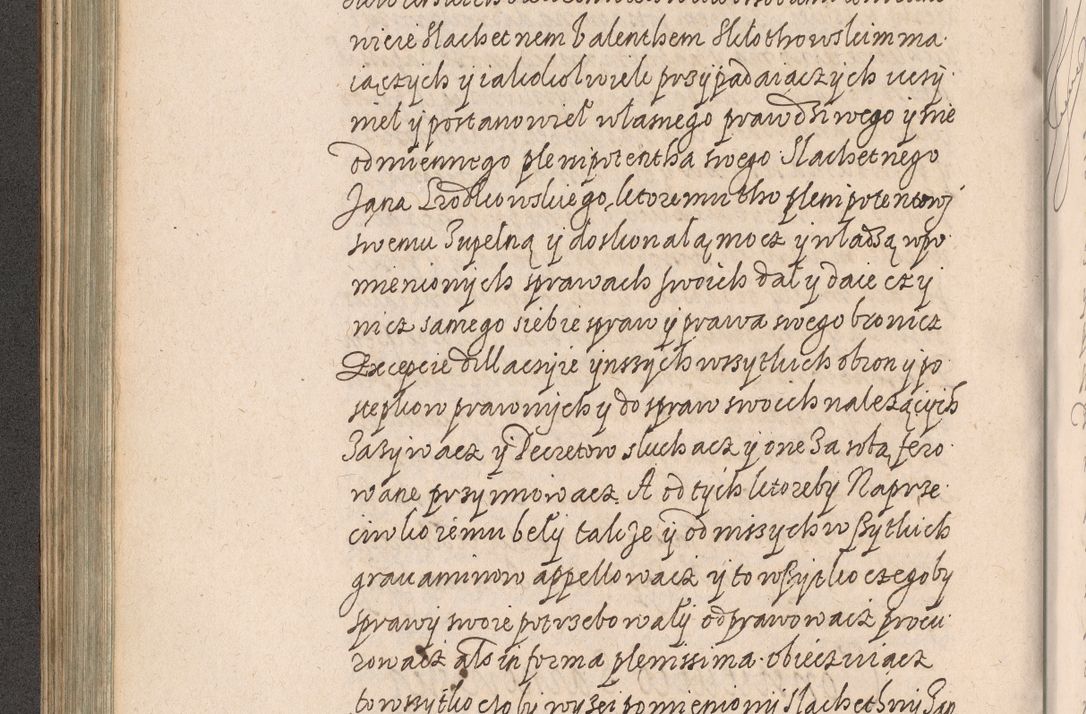 nicie Slachetnem Valenthem Skłothowskim ma
iączych y iakokolwiek przypadaiaczych uczy
niel y postanowieł własnego prawdziwego y nie
odmiennego plenipotentha swego Slachetnego
Jana Srodkowskiego, ktoremu tho plenipotentowi
swemu Zupełną y doskonałą mocz y władzą wpo
mienionych sprawach swoich dał y daie czy
nicz samego siebie spraw y prawa swego bronicz
Excepcie dillacyie ynszych wszytkich obron y po
stepkow prawnych y do spraw swoich należących
Zazywacz y Decretow sluchacz y one Za sobą fero
wane przyimowacz. A od tych ktoreby Naprze
ciwko iemu beły takze y od inszych wszytkich
grauaminow appellowacz y to wszytko czegoby
sprawy swoie potrzebowały odprawowacz procu
rowacz als in forma plenissima obieczuiącz
to wszytko cloby wyszei pomieniony Slachethny Jan